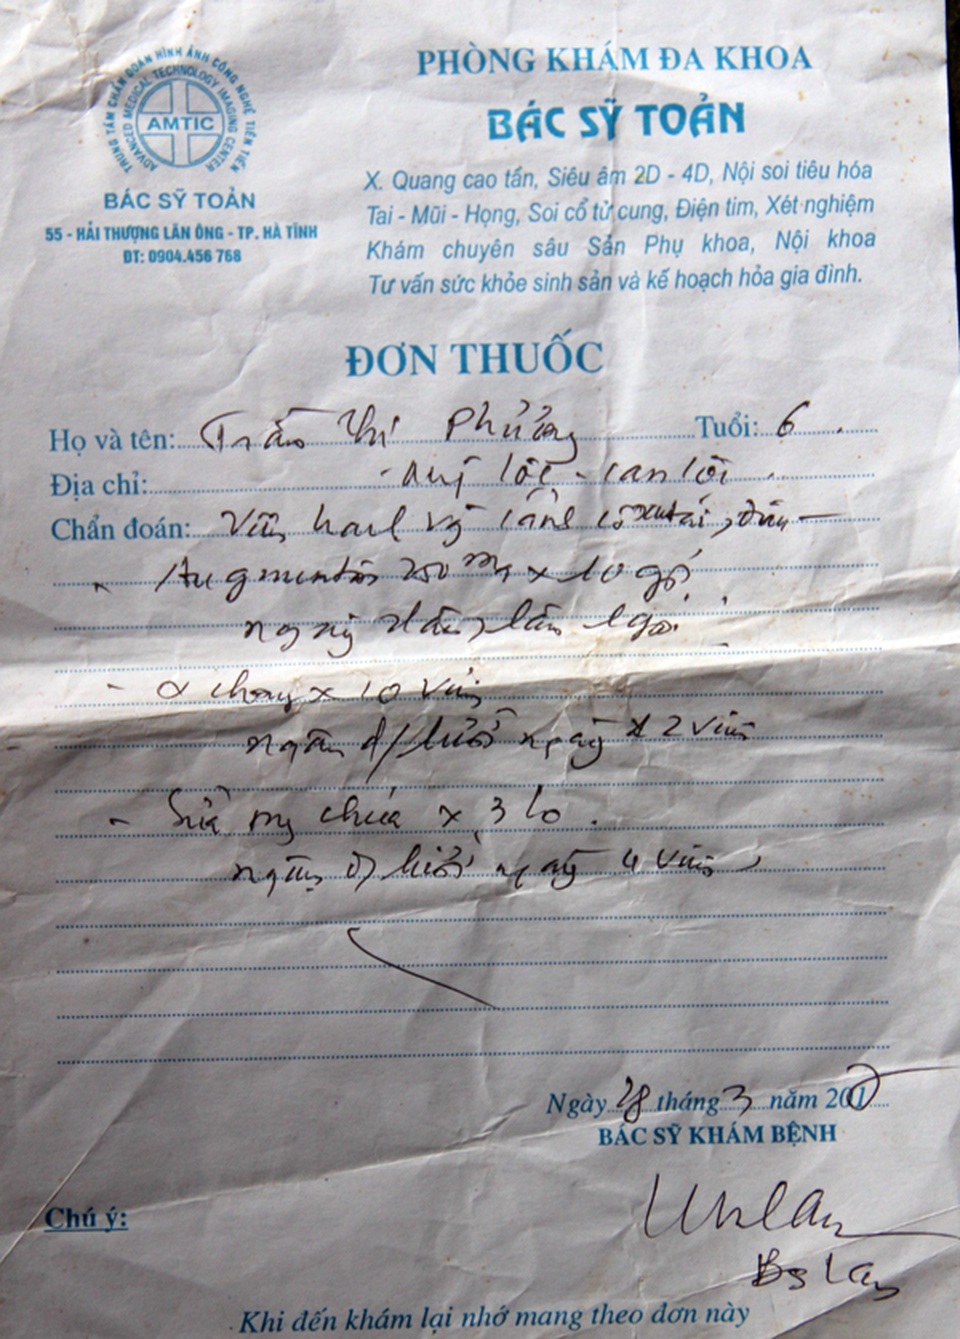 TRUNG TÂM CHẨN ĐOÁN HÌNH ẢNH CÔNG NGHỆ TIÊN TIẾN
ADVANCED MEDICAL TECHNOLOGY IMAGING CENTER
AMTIC
BÁC SỸ TOẢN
55 - HẢI THƯỢNG LÃN ÔNG - TP. HÀ TĨNH
ĐT: 0904.456 768
PHÒNG KHÁM ĐA KHOA
BÁC SỸ TOẢN
X. Quang cao tần, Siêu âm 2D - 4D, Nội soi tiêu hóa
Tai - Mũi - Họng, Soi cổ tử cung, Điện tim, Xét nghiệm
Khám chuyên sâu Sản Phụ khoa, Nội khoa
Tư vấn sức khỏe sinh sản và kế hoạch hỏa gia đình.
ĐƠN THUỐC
Họ và tên: Trần Thị Phương Tuổi: 6
Địa chỉ: Mỹ Lộc - Can Lộc
Chẩn đoán: Viêm
- Augmentin 250mg x 10 gói
ngày lần
- α x 10 viên
ngậm d/ lưỡi ngày x 2 viên
- Sữa ong chúa x 3 lọ.
ngậm d/ lưỡi ngày 4 viên
Ngày 28 tháng 3 năm 201
BÁC SỸ KHÁM BỆNH
Chú ý:
Bs Lan
Khi đến khám lại nhớ mang theo đơn này